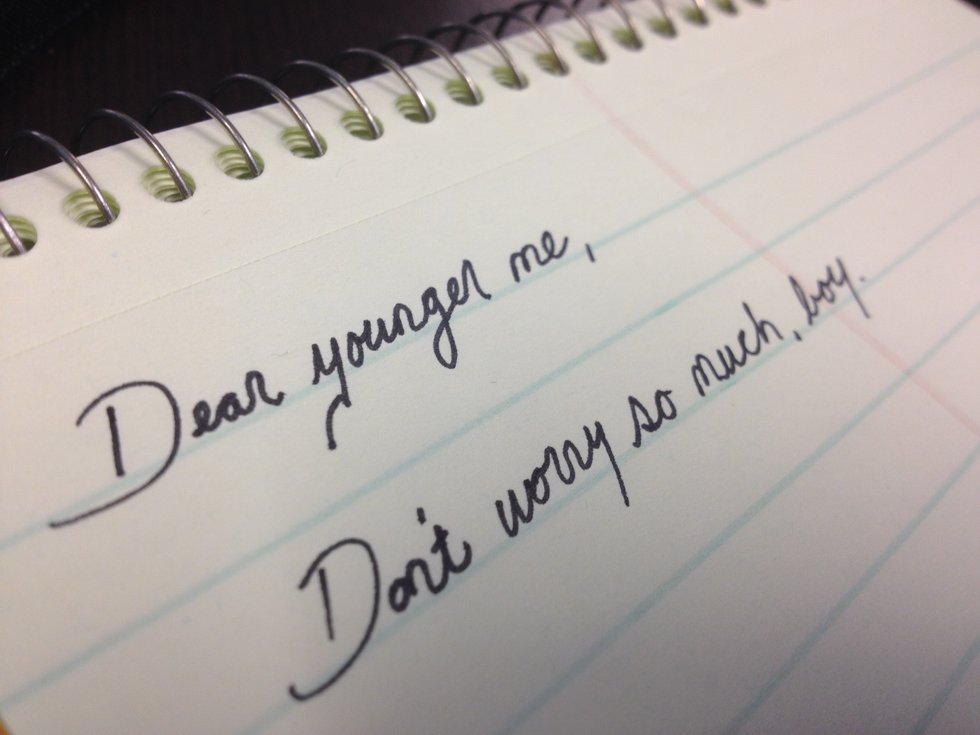 Dear younger me,
Don't worry so much, boy.